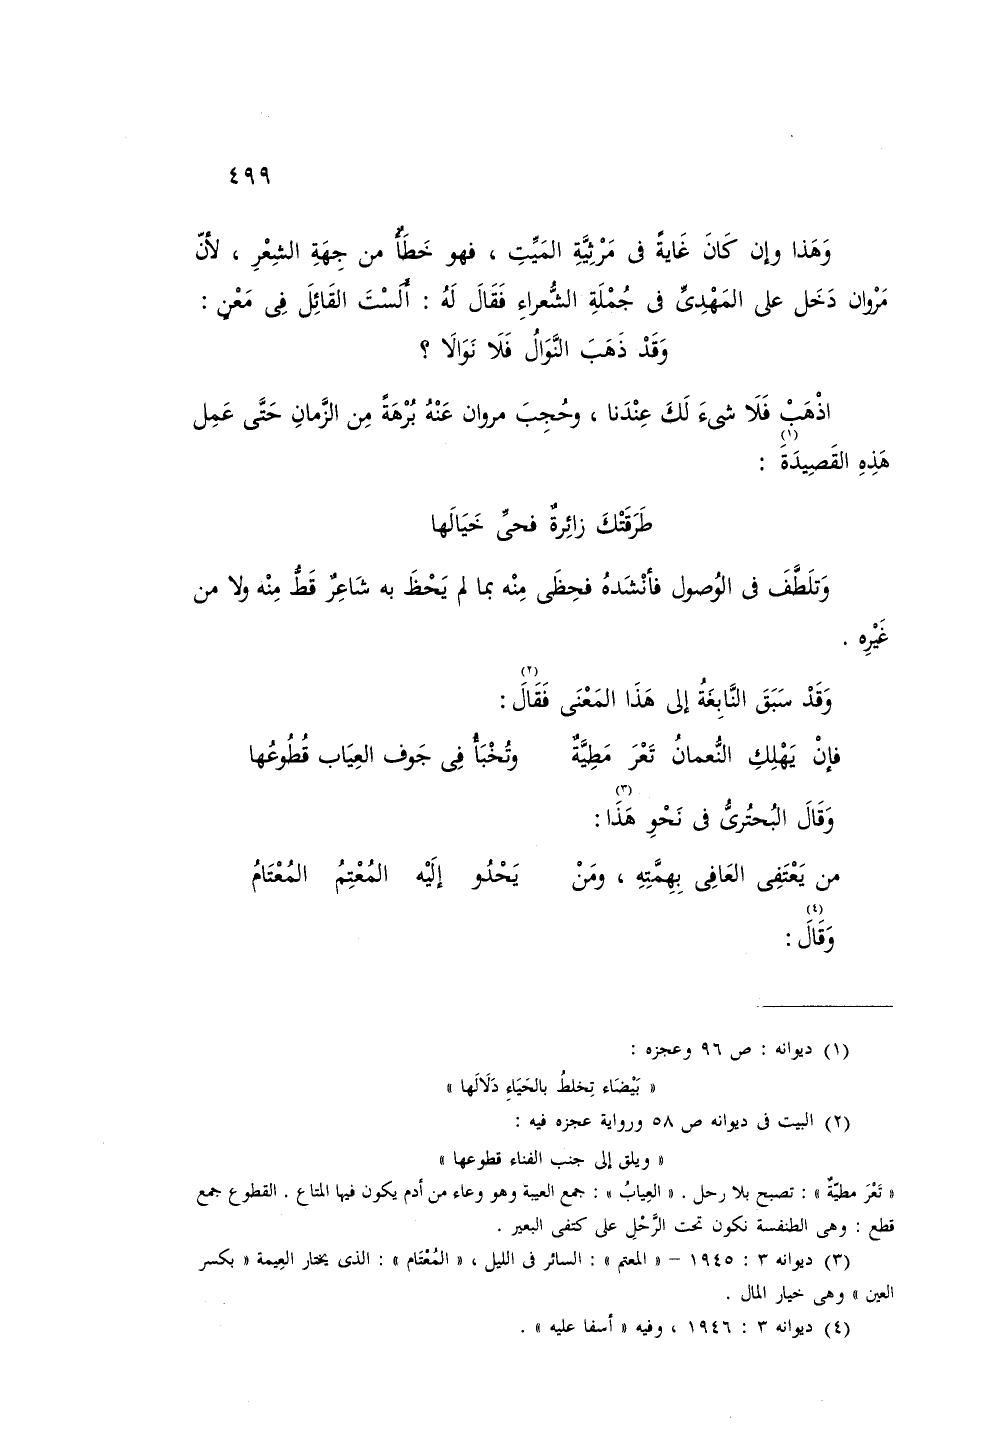 ٤٩٩
وَهَذا وإن كَانَ غَايةً فى مَرْثِيَّةِ المَيِّتِ ، فهو خَطَأٌ من جِهَةِ الشِعْرِ ، لأنّ
مَرْوان دَخَل على المَهْدِىِّ فى جُمْلَةِ الشُّعراءِ فَقَالَ لَهُ : أَلَسْتَ القَائِلَ فِى مَعْنٍ :
وَقَدْ ذَهَبَ النَّوَالُ فَلَا نَوَالَا ؟
اذْهَبْ فَلَا شىءَ لَكَ عِنْدَنا ، وحُجِبَ مروان عَنْهُ بُرْهَةً مِن الزَّمانِ حَتَّى عَمِل
هَذِهِ القَصِيدَةَ (١) :
طَرَقَتْكَ زائِرةٌ فحىِّ خَيَالَها
وَتلَطَّفَ فى الوُصول فأنْشَدهُ فحِظَى مِنْه بما لم يَحْظَ به شَاعِرٌ قَطُّ مِنْه ولا من
غَيْرِه .
وَقَدْ سَبَقَ النَّابِغَةُ إلى هَذَا المَعْنَى فَقَالَ (٢) :
فإنْ يَهْلِكِ النُّعمانُ تَعْرَ مَطِيَّةٌ وتُخْبَأُ فِى جَوف العِيَاب قُطُوعُها
وَقَالَ البُحتُرىُّ فى نَحْوِ هَذَا (٣) :
من يَعْتَفِى العَافِى بِهِمَّتِهِ ، ومَنْ يَحْدُو إلَيْه المُعْتِمُ المُعْتَامُ
وَقَالَ (٤) :
(١) ديوانه : ص ٩٦ وعجزه :
« بَيْضَاء تِخلطُ بالحَيَاءِ دَلَالَها »
(٢) البيت فى ديوانه ص ٥٨ ورواية عجزه فيه :
« ويلق إلى جنب الفناء قطوعها »
« تَعْرَ مطيّةٌ » : تصبح بلا رحل . « العِيابُ » : جمع العيبة وهو وعاء من أدم يكون فيها المتاع . القطوع جمع
قطع : وهى الطنفسة نكون تحت الرَّحْلِ على كتفى البعير .
(٣) ديوانه ٣ : ١٩٤٥ – « المعتم » : السائر فى الليل ، « المُعْتَام » : الذى يختار العِيمة « بكسر
العين » وهى خيار المال .
(٤) ديوانه ٣ : ١٩٤٦ ، وفيه « أسفا عليه » .